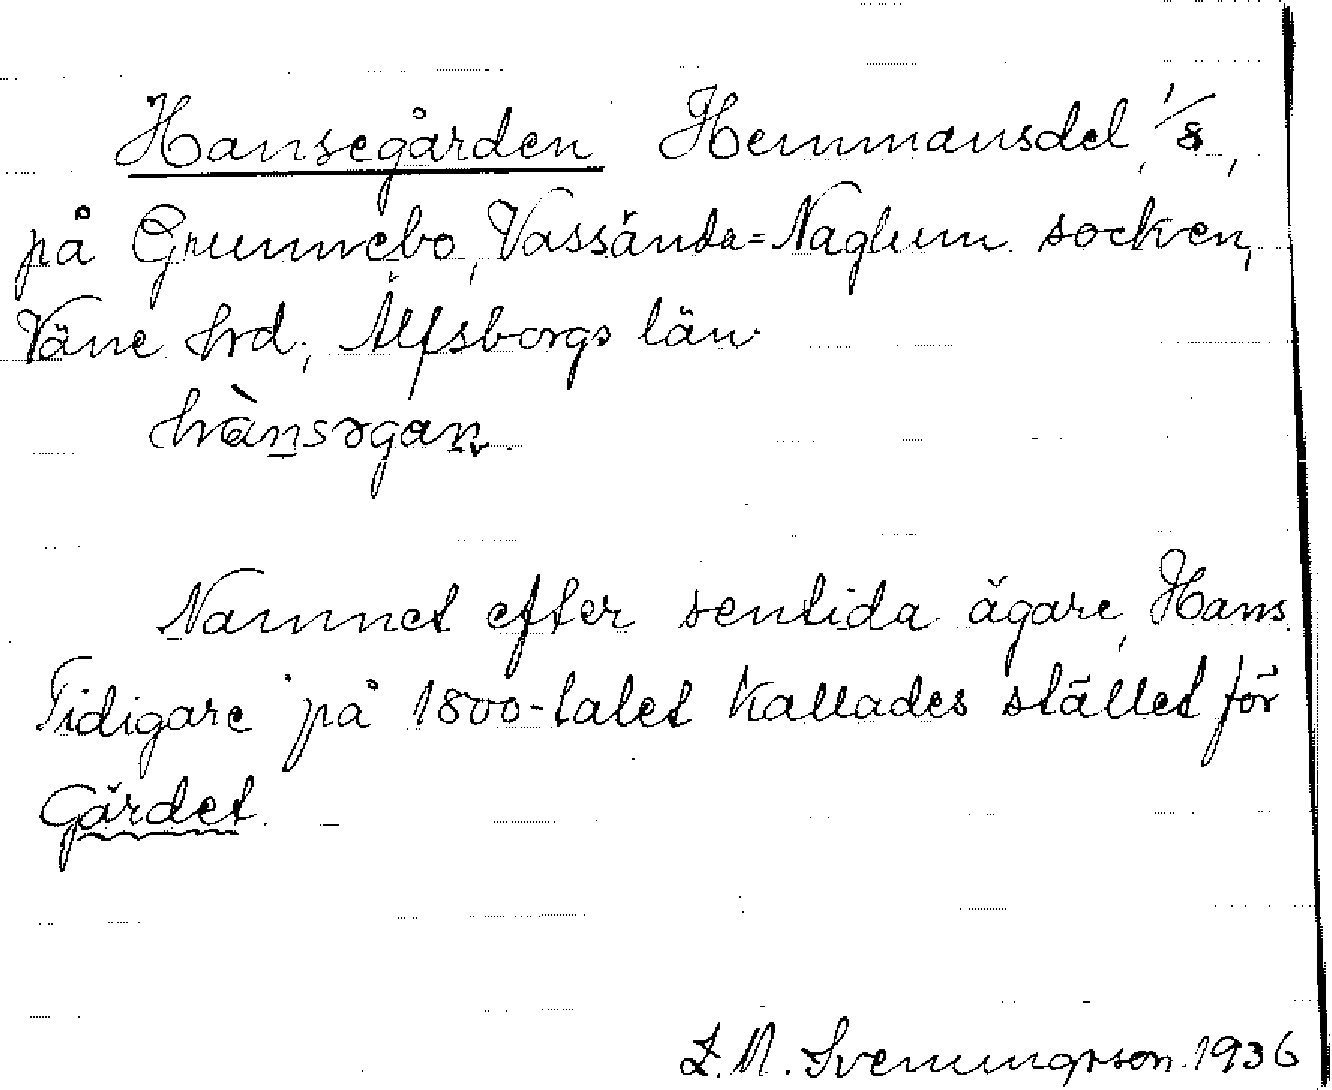 Hansegården Hemmansdel, 1/8,
på Grunnebo, Vassända=Naglum socken,
Väne hrd, Älfsborgs län
hànsəgaɳ
Namnet efter sentida ägare, Hans.
Tidigare på 1800-talet kallades stället för
Gärdet.
Z. M. Svenungsson 1936